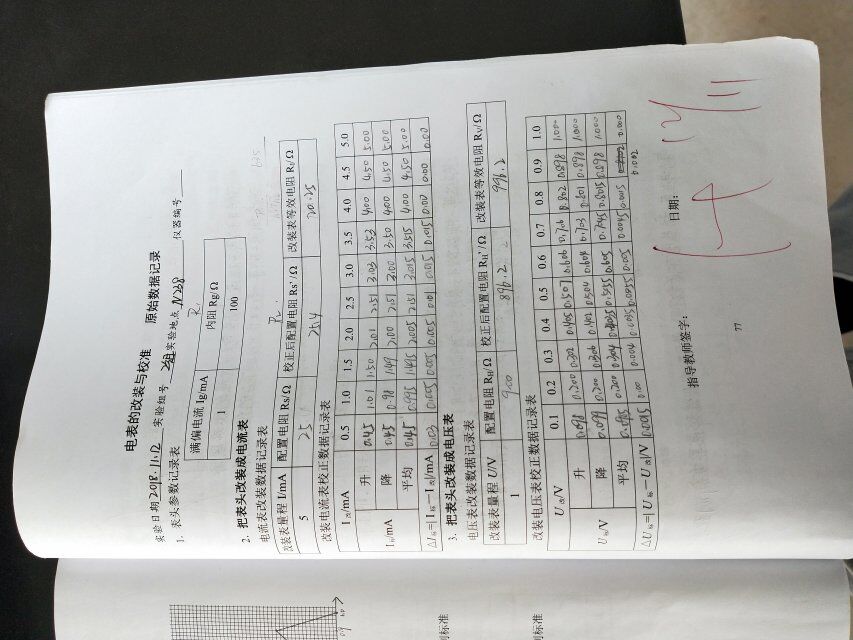 电表的改装与校准 原始数据记录
实验日期 2018.11.12 实验组号 2组 实验地点 N238 仪器编号
1. 表头参数记录表
满偏电流 Ig/mA 内阻 Rg/Ω
1 100
2. 把表头改装成电流表
电流表改装数据记录表
改装表量程 I/mA 配置电阻 Rs/Ω 校正后配置电阻 Rs'/Ω 改装表等效电阻 R₁/Ω
5 25 25.4 20.25
改装电流表校正数据记录表
I改/mA 0.5 1.0 1.5 2.0 2.5 3.0 3.5 4.0 4.5 5.0
I标/mA 升 0.45 1.01 1.50 2.01 2.51 3.03 3.53 4.00 4.50 5.00
降 0.45 0.98 1.49 2.00 2.51 3.00 3.50 4.00 4.50 5.00
平均 0.45 0.995 1.495 2.005 2.51 3.015 3.515 4.00 4.50 5.00
△I标=|I标−I改|/mA 0.005 0.005 0.005 0.01 0.015 0.015 0.00 0.00 0.00
3. 把表头改装成电压表
电压表改装数据记录表
改装表量程 U/V 配置电阻 RH/Ω 校正后配置电阻 RH'/Ω 改装表等效电阻 RV/Ω
1 900 896.2 996.2
改装电压表校正数据记录表
U改/V 0.1 0.2 0.3 0.4 0.5 0.6 0.7 0.8 0.9 1.0
U标/V 升 0.098 0.200 0.302 0.405 0.507 0.606 0.706 0.802 0.898 1.000
降 0.099 0.200 0.306 0.402 0.504 0.606 0.703 0.801 0.898 1.000
平均 0.0985 0.200 0.304 0.605 0.8015 0.898 1.000
△U标=|U标−U改|/V 0.0015 0.00 0.004 0.0035 0.005 0.0045 0.0015 0.000
0.002
指导教师签字: 日期:
77